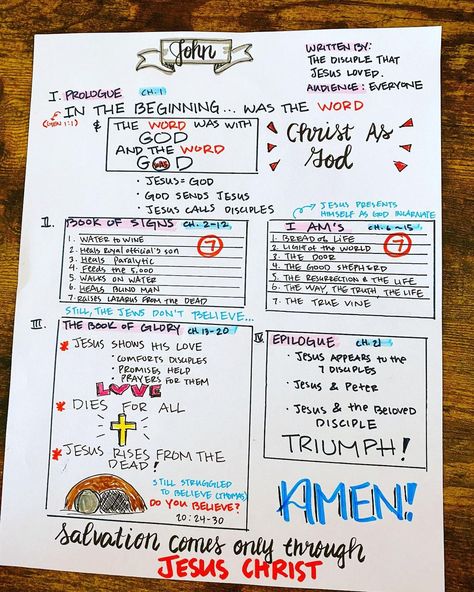 John
WRITTEN BY:
THE DISCIPLE THAT
JESUS LOVED.
AUDIENCE: EVERYONE
I. PROLOGUE CH. 1
IN THE BEGINNING... WAS THE WORD
(GEN 1:1)
& THE WORD WAS WITH
GOD
AND THE WORD
WAS
GOD
Christ As
God
• JESUS = GOD
• GOD SENDS JESUS
• JESUS CALLS DISCIPLES
JESUS PRESENTS
HIMSELF AS GOD INCARNATE
II. BOOK OF SIGNS CH. 2-12
1. WATER to WINE
2. Heals Royal official's son
3. Heals Paralytic
4. Feeds the 5,000
5. WALKS ON WATER
6. HEALS BLIND MAN
7. RAISES LAZARUS FROM THE DEAD
7
STILL, THE JEWS DON'T BELIEVE...
I AM'S CH. 6-15
1. BREAD OF LIFE
2. LIGHT OF THE WORLD
3. THE DOOR
4. THE GOOD SHEPHERD
5. THE RESURRECTION & THE LIFE
6. THE WAY, THE TRUTH, THE LIFE
7. THE TRUE VINE
7
III. THE BOOK OF GLORY CH. 13-20
* JESUS SHOWS HIS LOVE
• COMFORTS DISCIPLES
• PROMISES HELP
• PRAYERS FOR THEM
LOVE
* DIES FOR ALL
* JESUS RISES FROM THE
DEAD!
STILL STRUGGLED
TO BELIEVE (THOMAS)
DO YOU BELIEVE?
20:24-30
IV. EPILOGUE CH. 21
• JESUS APPEARS TO THE
7 DISCIPLES
• JESUS & PETER
• JESUS & THE BELOVED
DISCIPLE
TRIUMPH!
AMEN!
Salvation comes only through
JESUS CHRIST